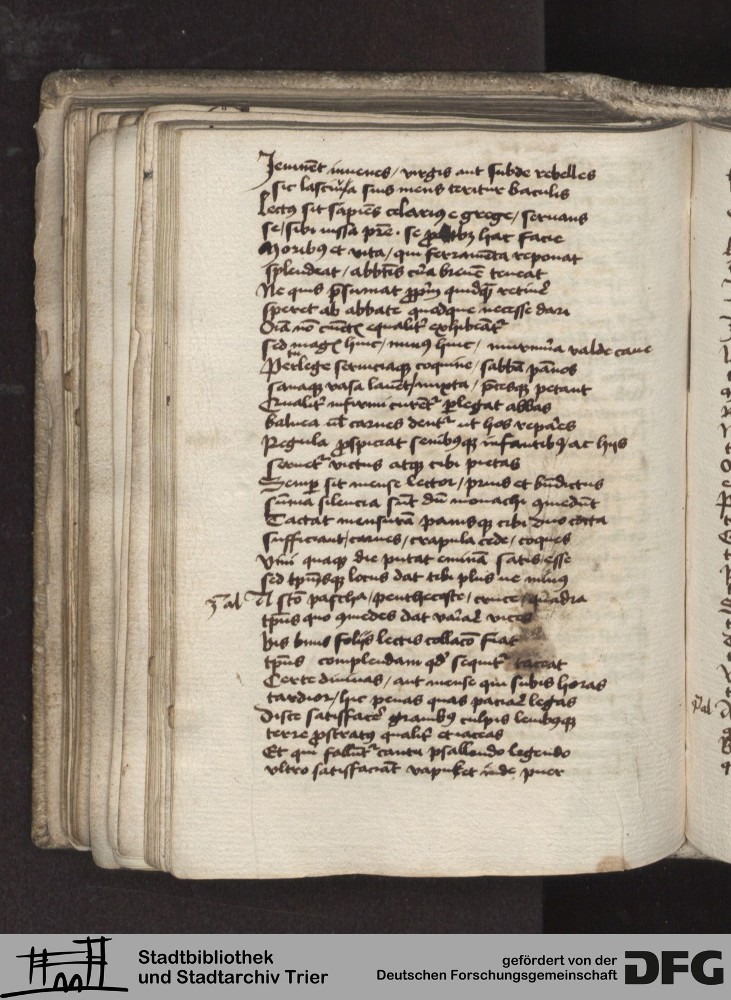 Ieiunēt iuuenes / virgis aut subde rebelles
sic lasciuia suis mens teritur baculis
Lectꝰ sit sapiēs celariꝰ e grege / seruans
se / sibi iussa pr̄e · se hac facie
Moribꝰ et vita / qui ferramēta reponat
splendeat / abbt̄is cūa breuē teneat
Ne quis p̄sumat ꝓpm̄ quidq̄ retiner̄
speret ab abbate quodque necesse dari
Oīa nō cunctꝭ equalit᷑ exhibeāt᷑
sed magꝭ huic / minꝰ huic / murmura valde caue
Perlege seruiciaqꝫ coquine / sabb̄a pānos
sanaqꝫ vasa lauet / petant
infirmi curēt᷑ ꝑlegat abbas
balnea vt̄ carnes dent᷑ ut hos repar̄es
Regula ꝓspiciat senibꝰqꝫ infantibꝰ ac hijs
seruet᷑ victus atqꝫ cibi pietas
Semꝑ sit mense lector / prius et bn̄dictus
sūma silencia sūt dū monachi ꝯmedūt
mensurā panisqꝫ cibi duo cocta
sufficiant / carnes / crapula cede / coques
Vini quaqꝫ die putat eminā satis esse
sed locus dat tibi plus ue minꝰ
al A scō pascha / penthecoste / cruce / quadra
tp̄us quo ꝯmedes dat var̄iar̄ vices
bis binis folijs lectis collacō fiat
tp̄us complendam qd̄ sequit᷑ taceat
Certe diuinas / aut mense qui subis horas
tardior / hic penas quas paciar̄ legas
Disce satisfacer̄ grauibꝰ culpis leuibꝰqꝫ
terre ꝓstratꝰ qualit᷑ et iaceas
Et qui fallūt᷑ cantu psallendo legendo
vltro satisfaciāt vapulet īde puer
Stadtbibliothek
und Stadtarchiv Trier
gefördert von der
Deutschen Forschungsgemeinschaft
DFG